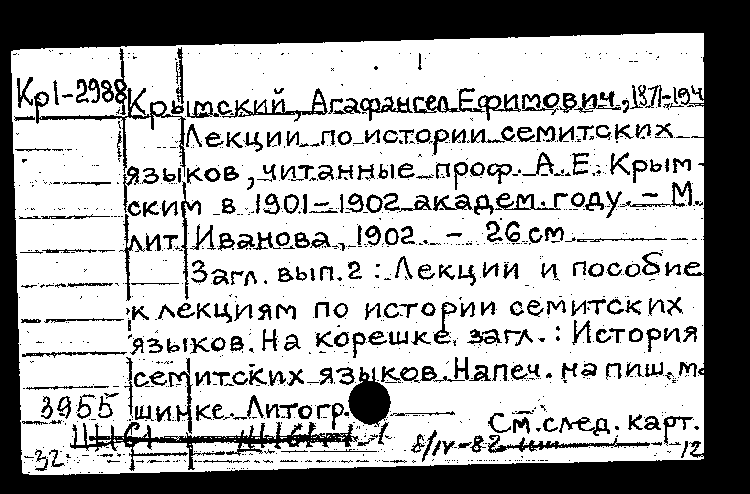 Кр1-2988 Крымский, Агафангел Ефимович, 1871-194
Лекции по истории семитских
языков, читанные проф. А. Е. Крым-
ским в 1901-1902 академ. году. - М.
лит. Иванова, 1902. - 26 см.
Загл. вып. 2: Лекции и пособие
к лекциям по истории семитских
языков. На корешке загл.: История
семитских языков. Напеч. на пиш. ма
3955 шинке. Литогр.
См. след. карт.
8/IV-82
32 12